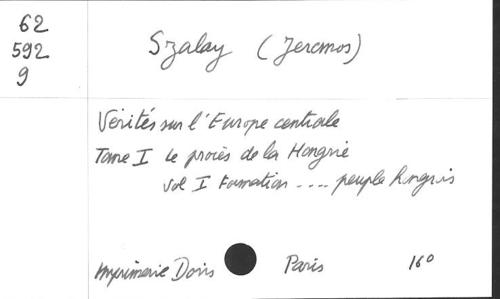 62
592
9
Szalay (Jeromos)
Vérités sur l'Europe centrale
Tome I Le procès de la Hongrie
Vol I Formation .... peuple hongrois
Imprimerie Doris Paris 160